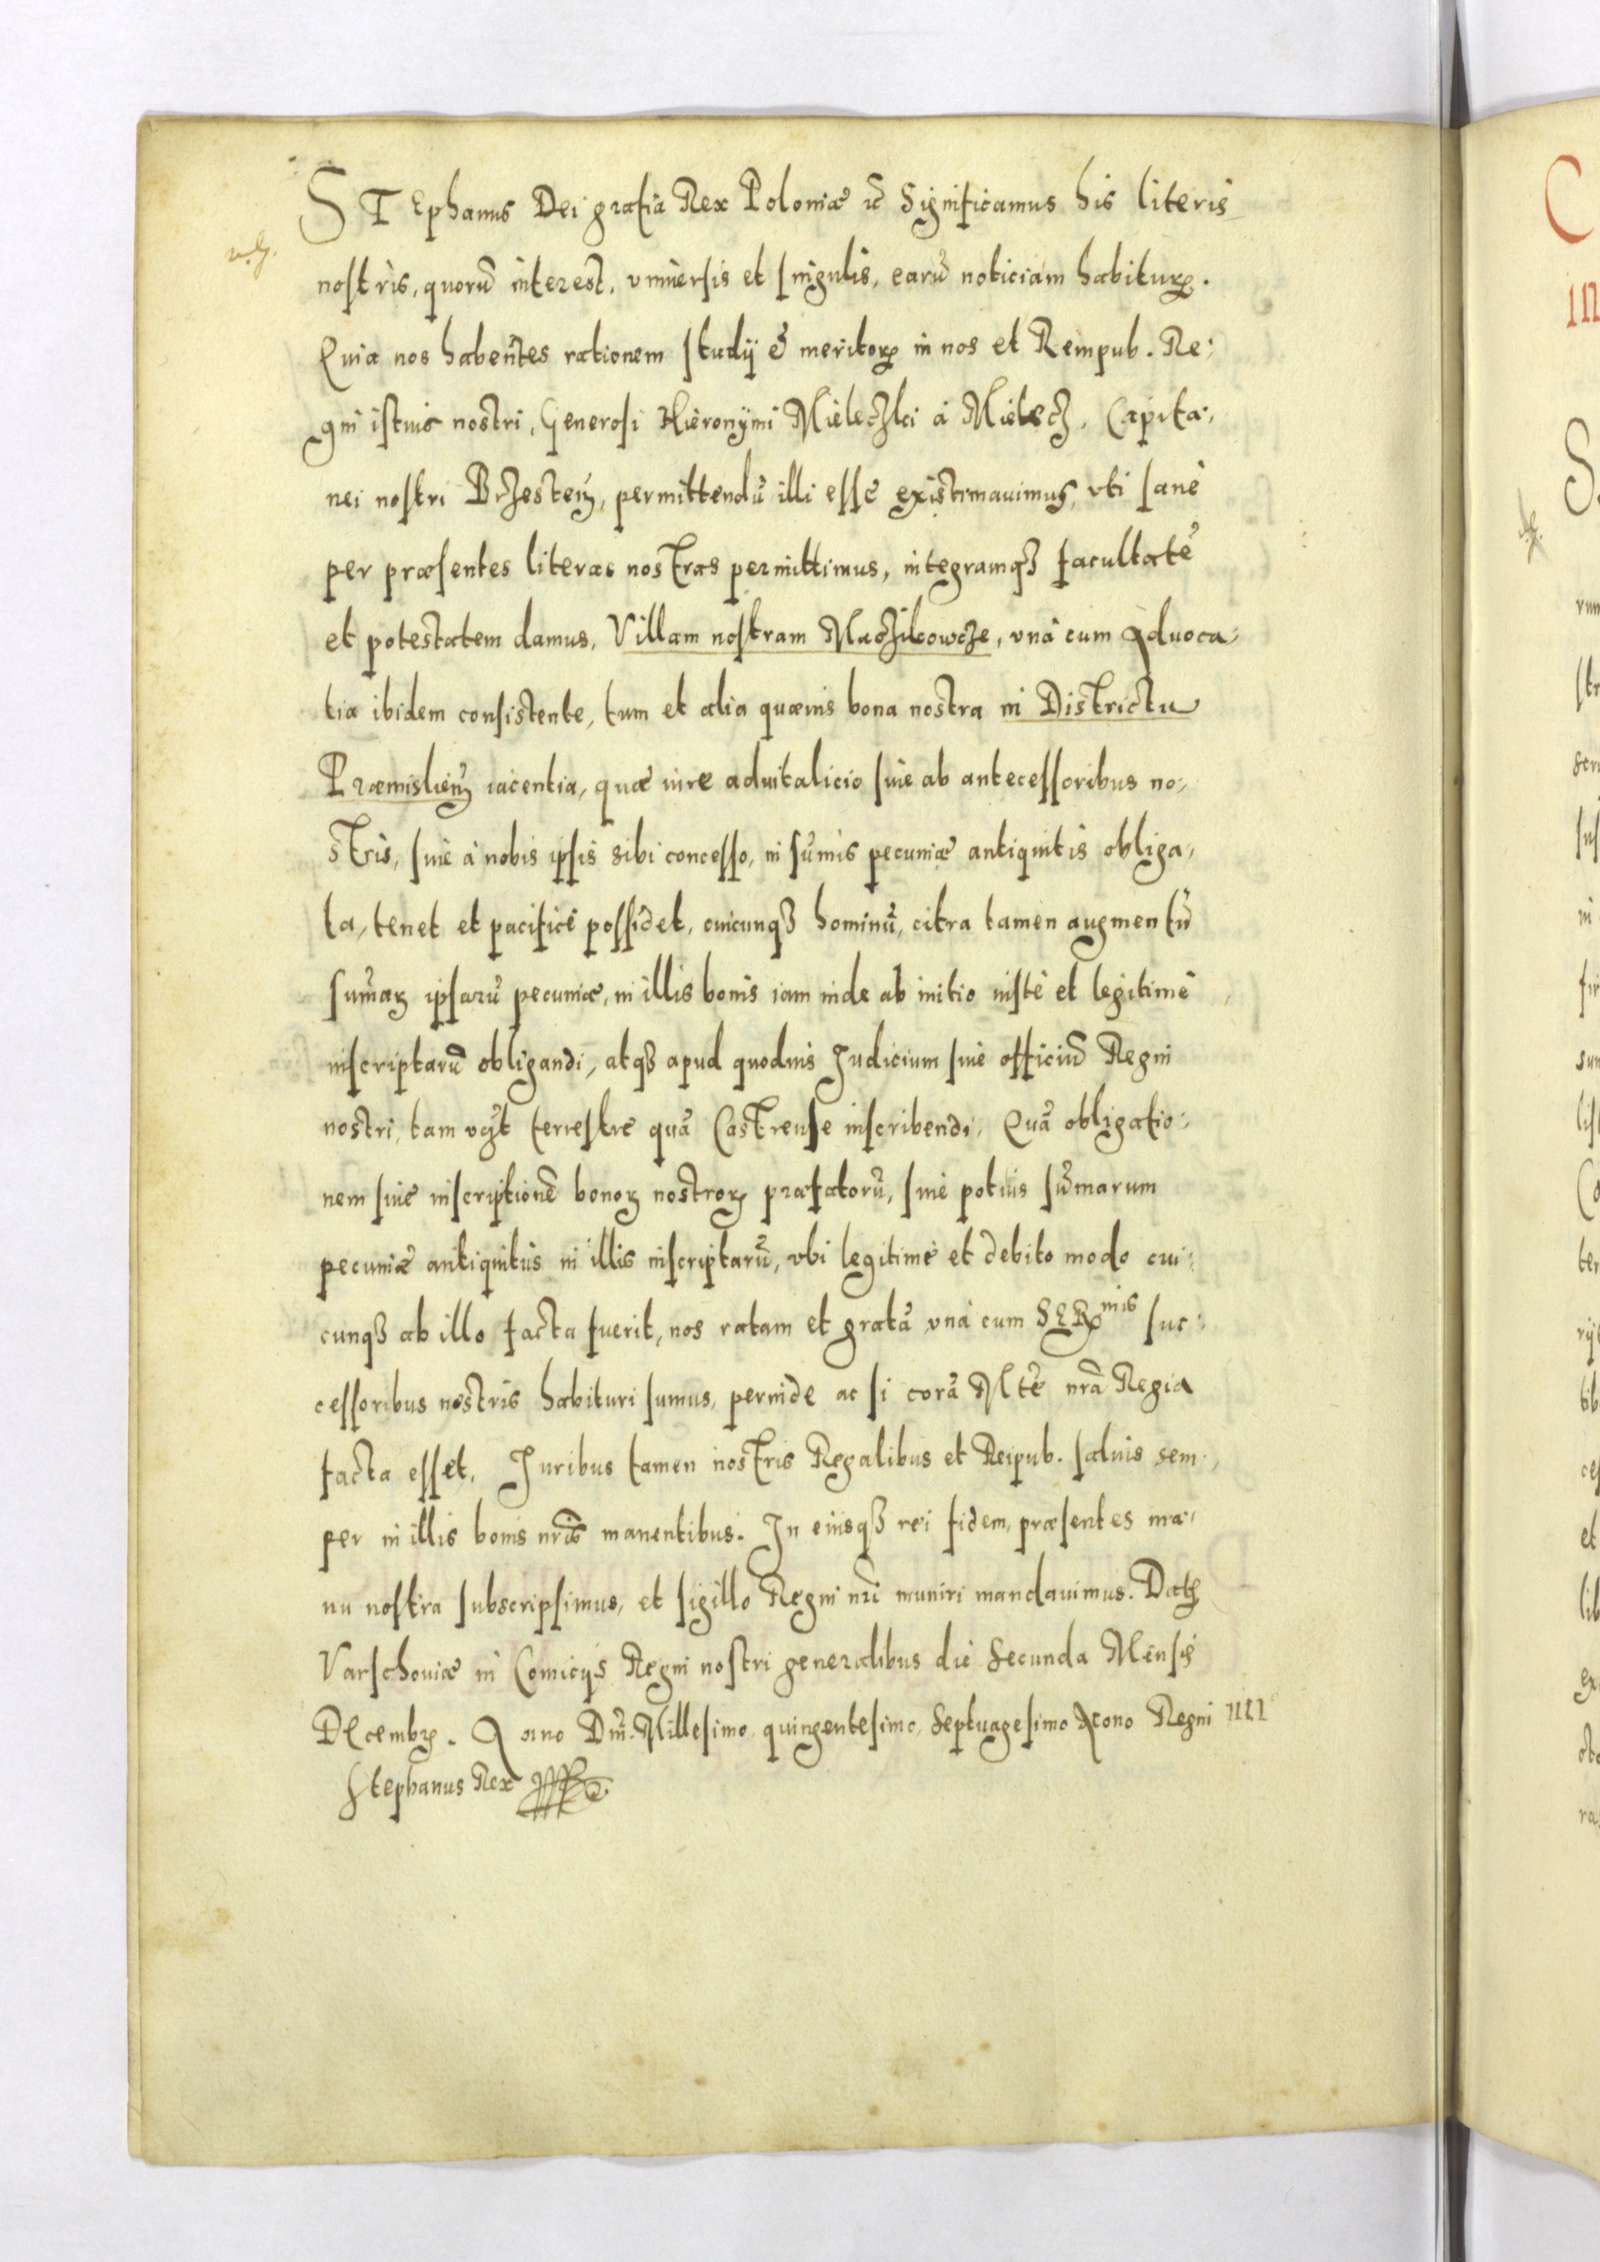 STEphanus Dei gratia Rex Poloniæ ꝛc Significamus his literis
nostris, quorũ interest, vniuersis et singulis, earũ noticiam habituꝝ.
Quia nos habentes rationem studij & meritoꝝ in nos et Rempub. Re-
gni istius nostri, Generosi Hieronÿmi Mieleczki à Mielecz, Capita-
nei nostri Brzesteñ, permittendũ illi esse existimauimus, vti sanè
per præsentes literas nostras permittimus, integramqȝ facultatẽ
et potestatem damus, Villam nostram Maczikowcze, vnà cum Aduoca-
tia ibidem consistente, tum et alia quæuis bona nostra in Districtu
Præmislieñ iacentia, quæ iure aduitalicio siue ab antecessoribus no-
stris, siue à nobis ipsis sibi concesso, in sũmis pecuniæ antiquitùs obliga-
ta, tenet et pacificè possidet, cuicunqȝ hominũ, citra tamen augmentũ
sũmaꝝ ipsarũ pecuniæ, in illis bonis iam inde ab initio iustè et legitimè
inscriptarũ obligandi, atqȝ apud quoduis Iudicium siue officiũ Regni
nostri, tam vz̃t terrestre quã Castrense inscribendi, Quã obligatio-
nem siue inscriptionẽ bonoꝝ nostroꝝ præfatorũ, siue potiùs sũmarum
pecuniæ antiquitùs in illis inscriptarũ, vbi legitimè et debito modo cui-
cunqȝ ab illo facta fuerit, nos ratam et gratã vnà cum SERmis suc-
cessoribus nostris habituri sumus, perinde ac si corã Mtẽ nr̃a Regia
facta esset. Iuribus tamen nostris Regalibus et Reipub. saluis sem-
per in illis bonis nr̃is manentibus. In eiusqȝ rei fidem, præsentes ma-
nu nostra subscripsimus, et sigillo Regni nr̃i muniri mandauimus. Datꝫ
Varschouiæ in Comicijs Regni nostri generalibus die Secunda Mensis
DEcembꝝ. Anno Dñi. Millesimo quingentesimo Septuagesimo Nono Regni IIII
Stephanus Rex